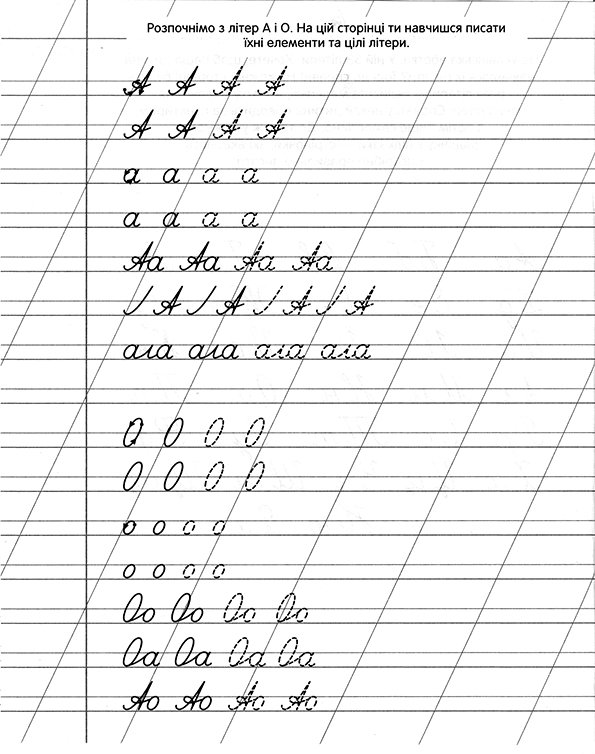 Розпочнімо з літер А і О. На цій сторінці ти навчишся писати
їхні елементи та цілі літери.
А А А А
А А А А
а а а а
а а а а
Аа Аа Аа Аа
А А А А
аıа аıа аıа аıа
О О О О
О О О О
о о о о
о о о о
Оо Оо Оо Оо
Оа Оа Оа Оа
Ао Ао Ао Ао